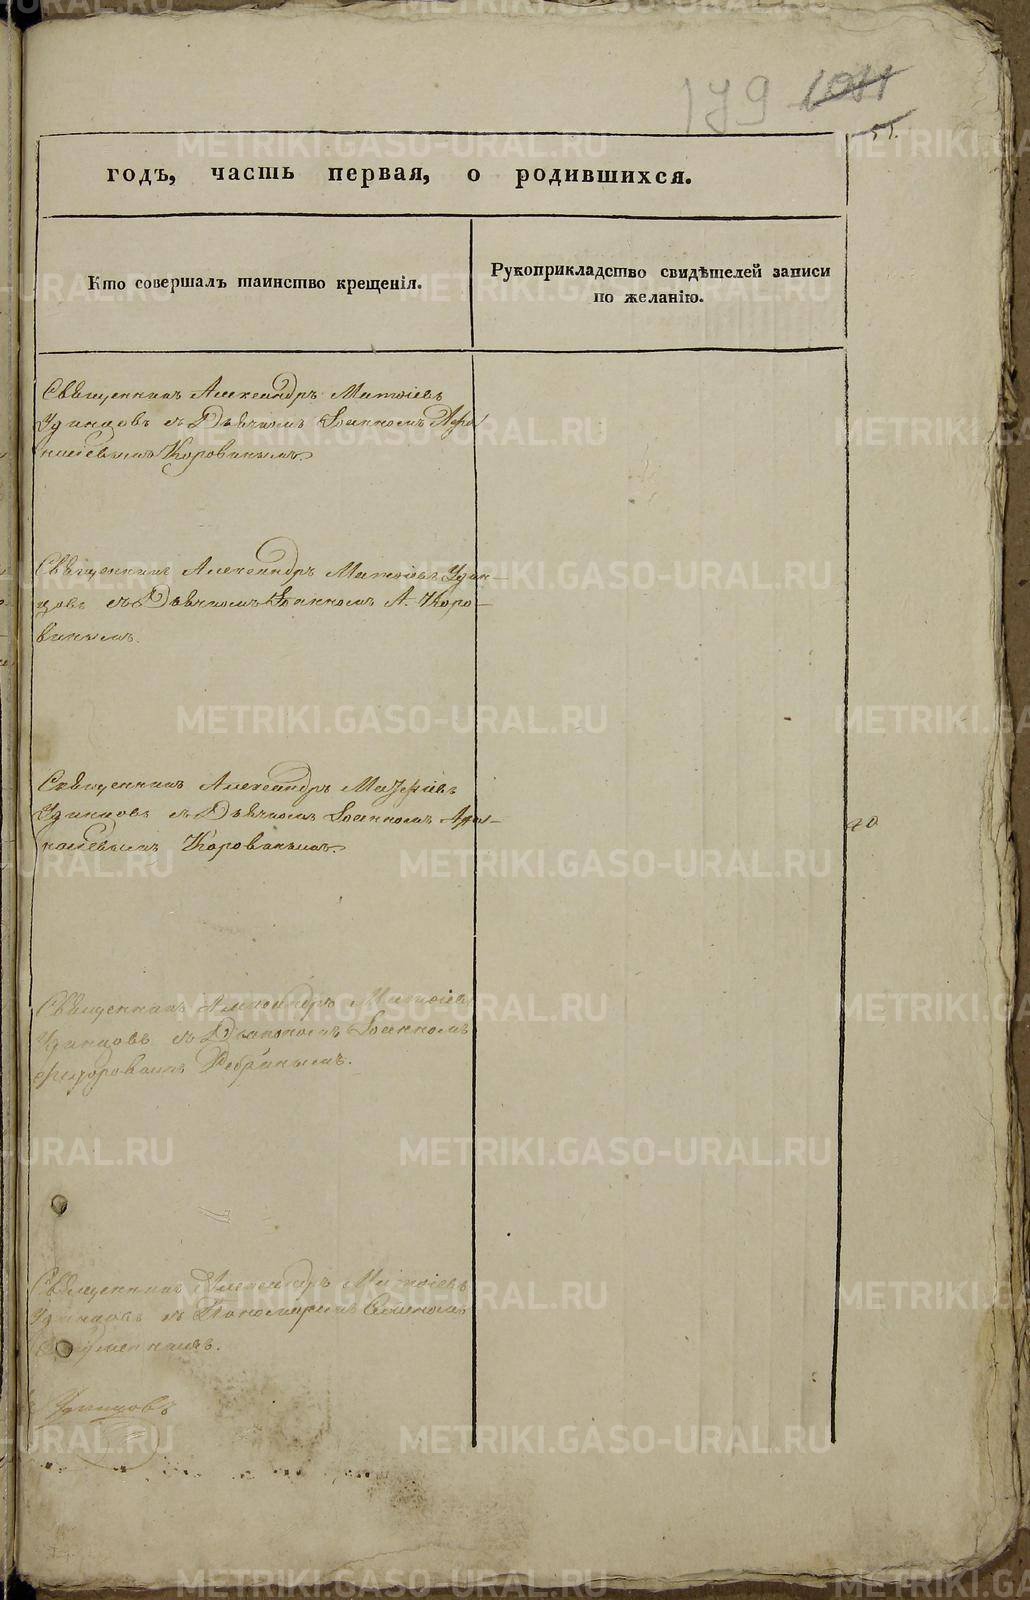 179 1011
51.
годъ, часть первая, о родившихся.
Кто совершалъ таинство крещенія.
Рукоприкладство свидѣтелей записи
по желанію.
Священникъ Александръ Матѳіевъ
Удинцовъ съ Дьячкомъ Іоанномъ Афа
насіевымъ Коровинымъ.
Священникъ Александръ Матѳіевъ Удин—
цовъ съ Дьячкомъ Іоанномъ А. Коро—
винымъ.
Священникъ Александръ Матѳіевъ
Удинцовъ съ Дьячкомъ Іоанномъ Афа—
насіевымъ Коровинымъ.
Священникъ Александръ Матѳіевъ
Удинцовъ съ Діакономъ Іоанномъ
Ѳедоровымъ
Священникъ Александръ Матѳіевъ
Удинцовъ съ Пономаремъ
Удинцовъ
METRIKI.GASO-URAL.RU